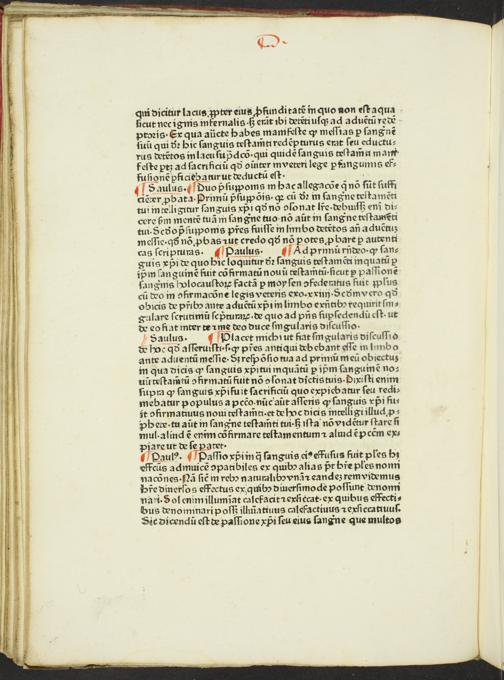 D.
qui dicitur lacus, ꝓpter eius ꝓfunditatē in quo non est aqua
sicut nec ignis infernalis. sꝫ erāt ibi detēti vsqꝫ ad aduētū redē
ptoris. Ex qua aūcte habes manifeste ꝙ messias ꝑ sangnē
suū qui dr̄ hic sanguis testamēti redēpturus erat seu eductu-
rus detētos in lacu sup̄dco. qui quidē sanguis testam̄ti mani
feste ptꝫ ad sacrificiū qd̓ offertur in veteri lege ꝑ sanguinis ef-
fusionē ꝓficiebatur vt deductū est.
¶ Saulus. ¶ Duo p̄supponis in hac allegacōe q̄ nō sūt suffi
ciēter ꝓbata. Primū p̄suppōis. ꝙ cū dr̄ in sangne testamēti
tui intelligitur sanguis xp̄i qd̓ nō ꝯsonat lr̄e. debuissꝫ eni di
cere ẜm mentē tuā in sangne tuo. nō aūt in sangne testamēti
tui. Scdo p̄supponis pr̄es fuisse in limbo detētos añ aduētū
messie. qd̓ nō ꝓbas vt credo qd̓ nō potes ꝓbare ꝑ autenti
cas scripturas. ¶ Paulus. ¶ Ad primū rn̄deo. ꝙ san-
guis xp̄i de quo hic loquitur dr̄ sanguis testamēti inquātū ꝑ
ip̄m sanguinē fuit confirmatū nouū testamētū. sicut ꝑ passionē
sanguinis holocaustoꝝ factā ꝑ moysen ꝯfederatus fuit ppl̓us
cū deo in ꝯfirmacōne legis veteris exo. xxiiii. Scdm vero qd̓
obicis de pr̄ibꝯ ante aduētū xp̄i in limbo exn̄tibꝯ requirit sin-
gulare scrutiniū sc̓pturaꝝ. de quo ad pn̄s supsedendū est. vt
de eo fiat inter te ⁊ me deo duce singularis discussio.
¶ Saulus. ¶ Placet michi vt fiat singularis discussio
de hoc qd̓ asseruisti. s. ꝙ pr̄es antiqui debebant esse in limbo
ante aduentū messie. Sꝫ respōsio tua ad primū meū obiectū
in qua dicis ꝙ sanguis xp̄i inquātū ꝑ ip̄m sanguinē no-
uū testam̄tū ꝯfirmatū fuit nō ꝯsonat dictis tuis. Dixisti enim
supra ꝙ sanguis xp̄i fuit sacrificiū quo expiebatur seu redi
mebatur populus a pctō. nūc aūt asseris ꝙ sanguis xp̄i fu-
it ꝯfirmatiuus noui testam̄ti. et de hoc dicis intelligi illud, ꝓ-
ph̄ete. tu aūt in sangne testam̄ti tui. sꝫ ista nō vidētur stare si
mul. aliud ē enim cōfirmare testamentum ⁊ aliud ē pctm̄ ex-
piare vt de se patet.
¶ Paulꝯ. ¶ Passio xp̄i in q̄ sanguis eiꝯ effusus fuit pl̄es hꝫ
effectus adinuicē ꝯpatibiles ex quibꝯ alias pt̄ hr̄e pl̄es nomi
nacōnes. Nā sic in rebꝯ naturalibꝯ vnā ⁊ eandē rem videmus
hr̄e diuersos effectus ex quibꝯ diuersimode possunt denomi
nari. Sol enim illuminat calefacit ⁊ exsiccat. ex quibus effecti-
bus denominari possꝫ illūatiuus calefactiuus ⁊ exsiccatiuus.
Sic dicendū est de passione xp̄i seu eius sangne que multos